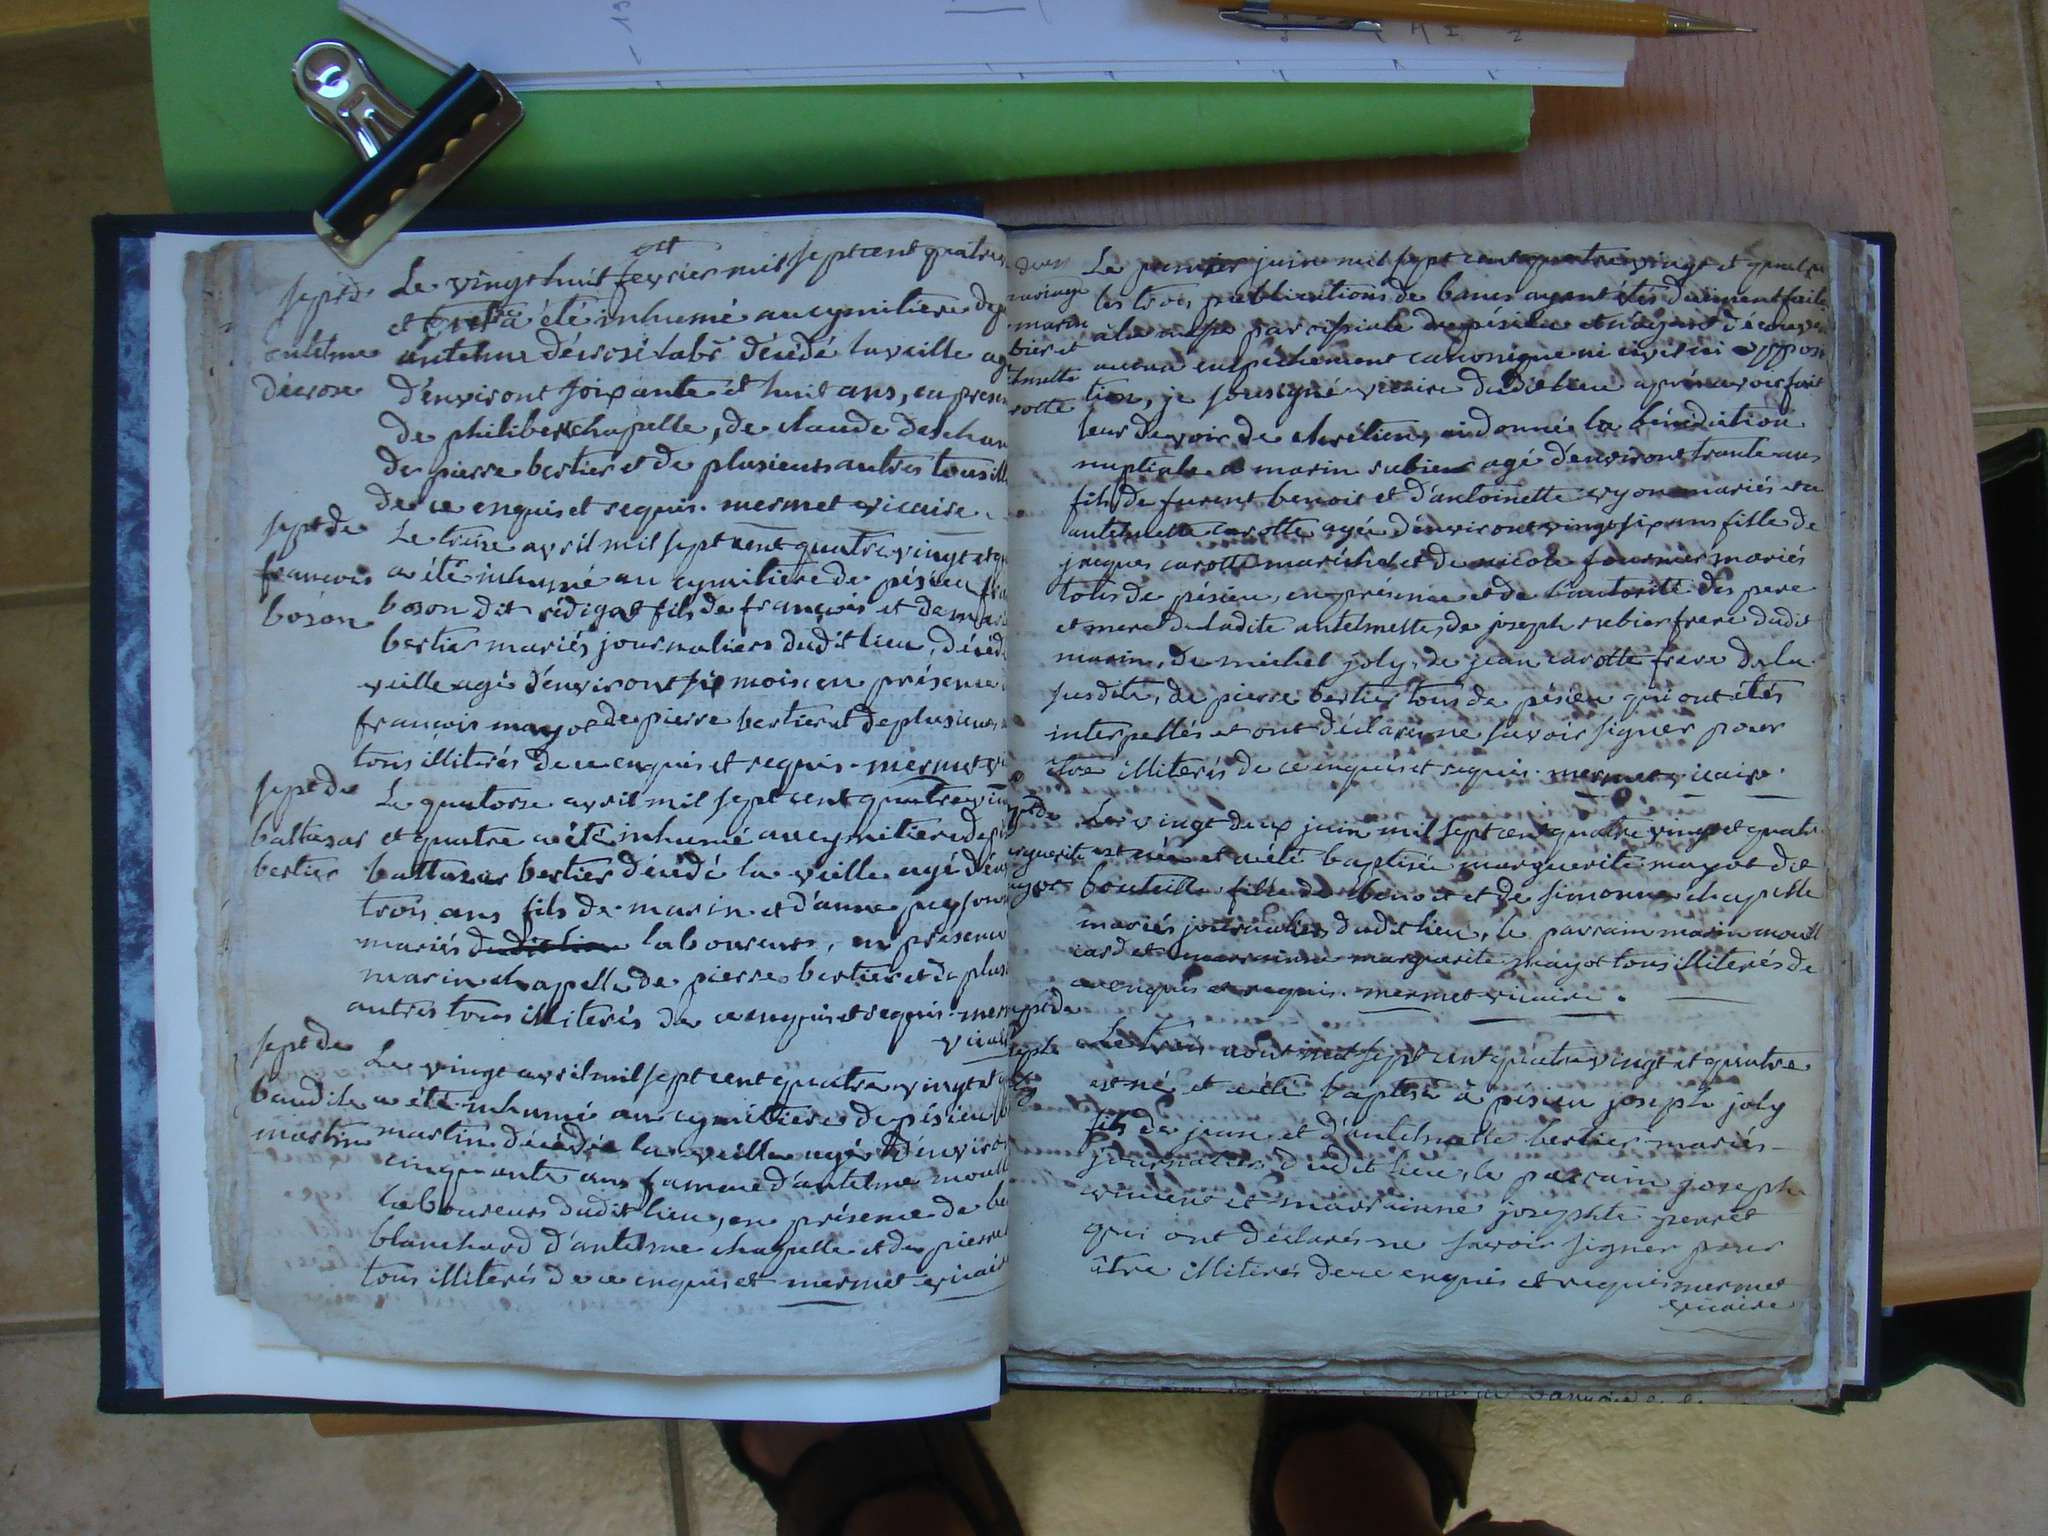 sept de
antelme
décrose
Le vingt huit fevrier mil sept cent quatre
et a été inhumé au cymitière de
antelme décrose labr décédé la veille ag
d'environt soixante et huit ans, en presen
de philibert chapelle, de claude deschan
de pierre bertier et de plusieurs autres tous ill
de ce enquis et requis. mermet vicaire
sept de
francois
boson
Le treise avril mil sept cent quatre vingt et q
a été inhumé au cymitière de pésieu fra
boson dit rédiget fils de francois et de mari
bertier mariés journaliers dudit lieu, décéd
veille agé d'environt six mois en présence
francois mayot de pierre bertier et de plusieurs
tous illiterés de ce enquis et requis. mermet vi
sept de
baltasar
bertier
Le quatorse avril mil sept cent quatre vin
et quatre a été inhumé au cymitière de pé
baltasar bertier décédé la veille agé d'env
trois ans fils de marin et d'anne peyson
mariés dudit lieu laboureurs, en présence
marin chapelle de pierre bertier et de plusi
autres tous illiterés de ce enquis et requis. mer
vicair
sept de
baudile
martin
Le vingt avril mil sept cent quatre vingt et q
a été inhumé au cymitière de pésieu b
martin décédée la veille agée d'environ
cinquante ans famme d'antelme mouill
laboureurs dudit lieu, en présence de be
blanchard d'antelme chapelle et de pierre
tous illiterés de ce enquis et mermet vicaire
mariage
marin
bier et
telmette
rotte
Le premier juin mil sept cent quatre vingt et quatre
les trois publications de bancs ayant étés duëment faite
à la messe paroissiale de pésieu et n'ayant découvert
aucun empêchement canonique ni civil ni opposi
tion, je sousigné vicaire dudit lieu après avoir fait
leur devoir de chrétien, ai donné la bénédiction
nuptiale a marin rubier agé d'environt trante ans
fils de furent benoit et d'antoinette vyon mariés et a
antelmette carotte agée d'environt vingt six ans fille de
jacques carotte maréchal et de nicole fournier mariés
tous de pésieu, en présence et de l'autorité des pere
et mere de ladite antelmette, de joseph rubier frere dudit
marin, de michel joly, de jean carotte frere de la
susdite, de pierre bertier tous de pésieu qui ont étés
interpellés et ont déclarés ne savoir signer pour
être illiterés de ce enquis et requis. mermet vicaire.
pt de
rguerite
ayot
Le vingt deux juin mil sept cent quatre vingt et quatre
est née et a été baptisée marguerite mayot dit
bouteille fille de benoit et de simonne chapelle
mariés journaliers dudit lieu, le parrain marin mouill
card et marrainne marguerite mayot tous illiterés de
ce enquis et requis. mermet vicaire.
pt de
seph
Le trois aout mil sept cent quatre vingt et quatre
est né et a été baptisé à pésieu joseph joly
fils de jean et d'antelmette bertier mariés
journaliers dudit lieu, le parrain joseph
et marrainne josephte perret
qui ont déclarés ne savoir signer pour
être illiterés de ce enquis et requis mermet
vicaire